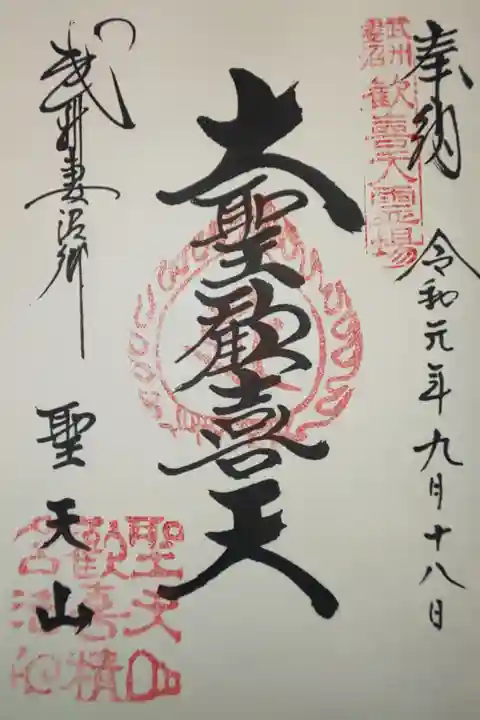 奉納 令和元年九月十八日
武州妻沼
歓喜天霊場
大聖歓喜天
武州妻沼郷
聖天山